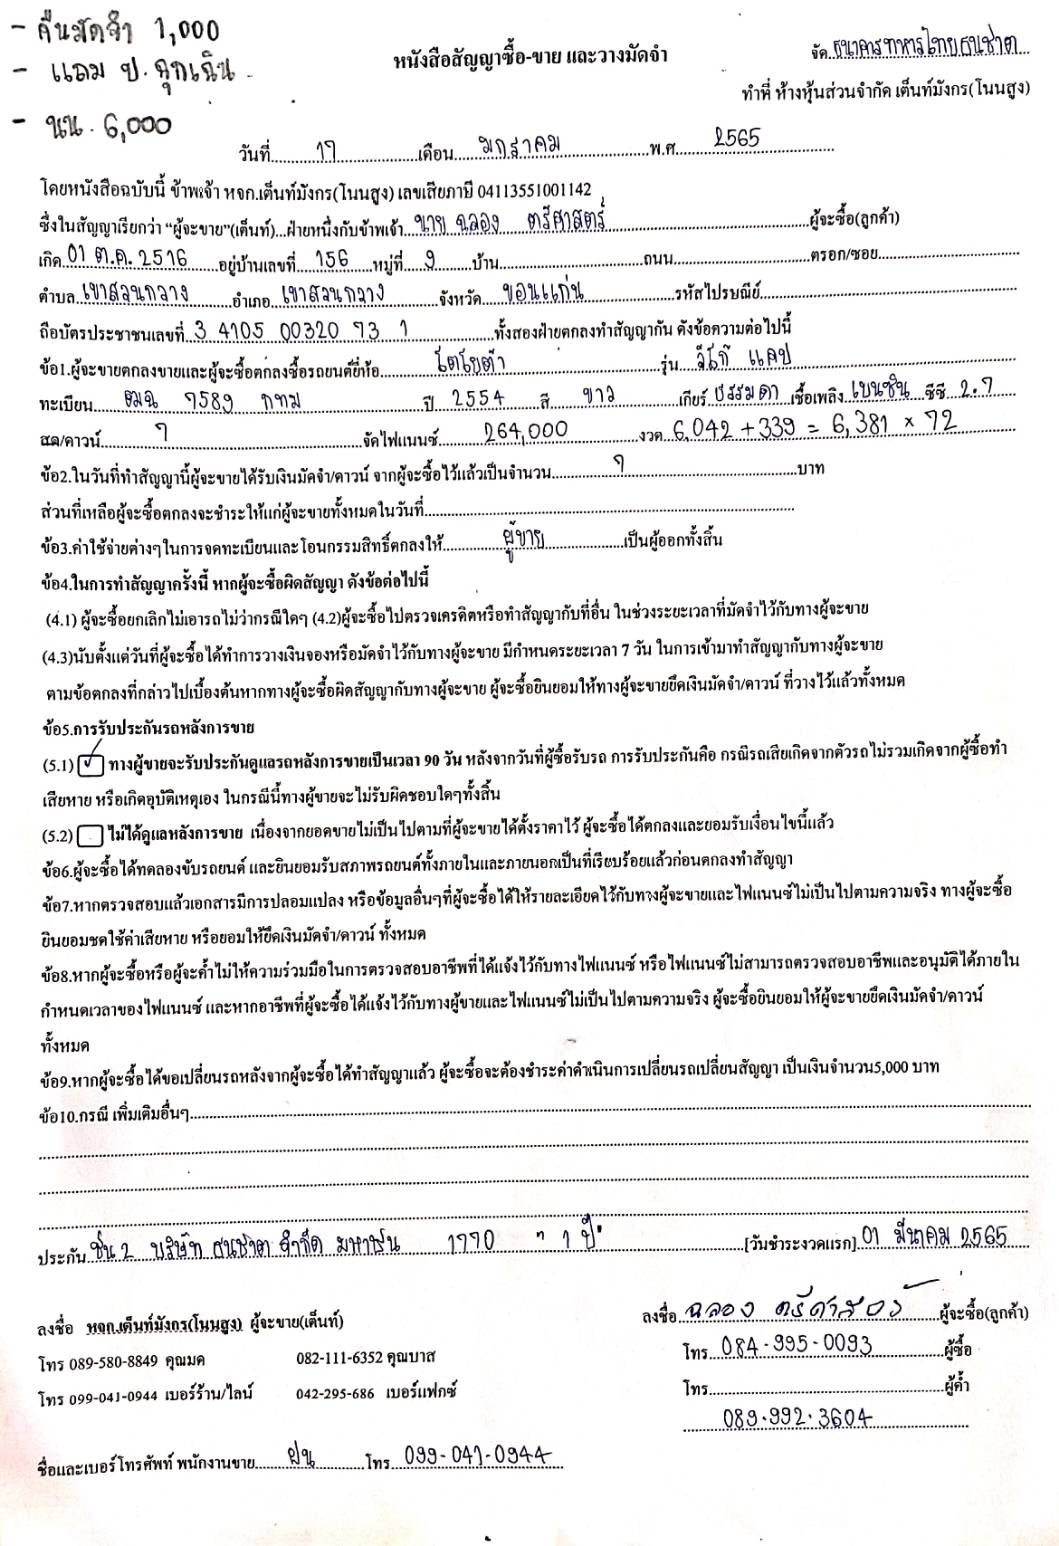 - คืนมัดจำ 1,000
- แถม ป. ฉุกเฉิน
- นน. 6,000
หนังสือสัญญาซื้อ-ขาย และวางมัดจำ
จัด ธนาคารทหารไทยธนชาต
ทำที่ ห้างหุ้นส่วนจำกัด เต็นท์มังกร(โนนสูง)
วันที่ 17 เดือน มกราคม พ.ศ. 2565
โดยหนังสือฉบับนี้ ข้าพเจ้า หจก.เต็นท์มังกร(โนนสูง) เลขเสียภาษี 04113551001142
ซึ่งในสัญญาเรียกว่า “ผู้จะขาย”(เต็นท์)...ฝ่ายหนึ่งกับข้าพเจ้า นาย ฉลอง ตรีศาสตร์ ผู้จะซื้อ(ลูกค้า)
เกิด 01 ต.ค. 2516 อยู่บ้านเลขที่ 156 หมู่ที่ 9 บ้าน ถนน ตรอก/ซอย
ตำบล เขาสวนกวาง อำเภอ เขาสวนกวาง จังหวัด ขอนแก่น รหัสไปรษณีย์
ถือบัตรประชาชนเลขที่ 3 4105 00320 73 1 ทั้งสองฝ่ายตกลงทำสัญญากัน ดังข้อความต่อไปนี้
ข้อ1.ผู้จะขายตกลงขายและผู้จะซื้อตกลงซื้อรถยนต์ยี่ห้อ โตโยต้า รุ่น วีโก้ แคป
ทะเบียน ฒฉ 7589 กทม ปี 2554 สี ขาว เกียร์ ธรรมดา เชื้อเพลิง เบนซิน ซีซี 2.7
สด/ดาวน์ 7 จัดไฟแนนซ์ 264,000 งวด 6,042 + 339 = 6,381 x 72
ข้อ2.ในวันที่ทำสัญญานี้ผู้จะขายได้รับเงินมัดจำ/ดาวน์ จากผู้จะซื้อไว้แล้วเป็นจำนวน 7 บาท
ส่วนที่เหลือผู้จะซื้อตกลงจะชำระให้แก่ผู้จะขายทั้งหมดในวันที่
ข้อ3.ค่าใช้จ่ายต่างๆในการจดทะเบียนและโอนกรรมสิทธิ์ตกลงให้ ผู้ขาย เป็นผู้ออกทั้งสิ้น
ข้อ4.ในการทำสัญญาครั้งนี้ หากผู้จะซื้อผิดสัญญา ดังข้อต่อไปนี้
(4.1) ผู้จะซื้อยกเลิกไม่เอารถไม่ว่ากรณีใดๆ (4.2)ผู้จะซื้อไปตรวจเครดิตหรือทำสัญญากับที่อื่น ในช่วงระยะเวลาที่มัดจำไว้กับทางผู้จะขาย
(4.3)นับตั้งแต่วันที่ผู้จะซื้อได้ทำการวางเงินจองหรือมัดจำไว้กับทางผู้จะขาย มีกำหนดระยะเวลา 7 วัน ในการเข้ามาทำสัญญากับทางผู้จะขาย
ตามข้อตกลงที่กล่าวไปเบื้องต้นหากทางผู้จะซื้อผิดสัญญากับทางผู้จะขาย ผู้จะซื้อยินยอมให้ทางผู้จะขายยึดเงินมัดจำ/ดาวน์ ที่วางไว้แล้วทั้งหมด
ข้อ5.การรับประกันรถหลังการขาย
(5.1) ✓ ทางผู้ขายจะรับประกันดูแลรถหลังการขายเป็นเวลา 90 วัน หลังจากวันที่ผู้ซื้อรับรถ การรับประกันคือ กรณีรถเสียเกิดจากตัวรถไม่รวมเกิดจากผู้ซื้อทำ
เสียหาย หรือเกิดอุบัติเหตุเอง ในกรณีนี้ทางผู้ขายจะไม่รับผิดชอบใดๆทั้งสิ้น
(5.2) ไม่ได้ดูแลหลังการขาย เนื่องจากยอดขายไม่เป็นไปตามที่ผู้จะขายได้ตั้งราคาไว้ ผู้จะซื้อได้ตกลงและยอมรับเงื่อนไขนี้แล้ว
ข้อ6.ผู้จะซื้อได้ทดลองขับรถยนต์ และยินยอมรับสภาพรถยนต์ทั้งภายในและภายนอกเป็นที่เรียบร้อยแล้วก่อนตกลงทำสัญญา
ข้อ7.หากตรวจสอบแล้วเอกสารมีการปลอมแปลง หรือข้อมูลอื่นๆที่ผู้จะซื้อได้ให้รายละเอียดไว้กับทางผู้จะขายและไฟแนนซ์ไม่เป็นไปตามความจริง ทางผู้จะซื้อ
ยินยอมชดใช้ค่าเสียหาย หรือยอมให้ยึดเงินมัดจำ/ดาวน์ ทั้งหมด
ข้อ8.หากผู้จะซื้อหรือผู้จะค้ำไม่ให้ความร่วมมือในการตรวจสอบอาชีพที่ได้แจ้งไว้กับทางไฟแนนซ์ หรือไฟแนนซ์ไม่สามารถตรวจสอบอาชีพและอนุมัติได้ภายใน
กำหนดเวลาของไฟแนนซ์ และหากอาชีพที่ผู้จะซื้อได้แจ้งไว้กับทางผู้ขายและไฟแนนซ์ไม่เป็นไปตามความจริง ผู้จะซื้อยินยอมให้ผู้จะขายยึดเงินมัดจำ/ดาวน์
ทั้งหมด
ข้อ9.หากผู้จะซื้อได้ขอเปลี่ยนรถหลังจากผู้จะซื้อได้ทำสัญญาแล้ว ผู้จะซื้อจะต้องชำระค่าดำเนินการเปลี่ยนรถเปลี่ยนสัญญา เป็นเงินจำนวน5,000 บาท
ข้อ10.กรณี เพิ่มเติมอื่นๆ
ประกัน ชั้น 2 บริษัท ธนชาต จำกัด มหาชน 1770 " 1 ปี " [วันชำระงวดแรก] 01 มีนาคม 2565
ลงชื่อ หจก.เต็นท์มังกร(โนนสูง) ผู้จะขาย(เต็นท์)
ลงชื่อ ฉลอง ตรีศาสตร์ ผู้จะซื้อ(ลูกค้า)
โทร 089-580-8849 คุณมด 082-111-6352 คุณบาส
โทร 084-995-0093 ผู้ซื้อ
โทร 099-041-0944 เบอร์ร้าน/ไลน์ 042-295-686 เบอร์แฟกซ์
โทร ผู้ค้ำ
089.992.3604
ชื่อและเบอร์โทรศัพท์ พนักงานขาย ฝน โทร 099-041-0944